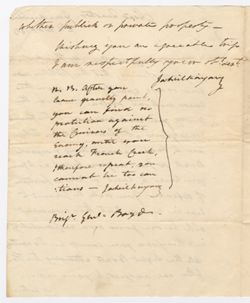 whether publick or private property —
Wishing you an agreeable trip
I am respectfully your ob. servt
Jabil Kingsay
N. B. After you
leave gravelly point,
you can find no
protection against
the Cruisers of the
Enemy, until you
reach French Creek,
I therefore repeat, you
cannot be too cau
tious —
Brigr. Genl. Boyd.